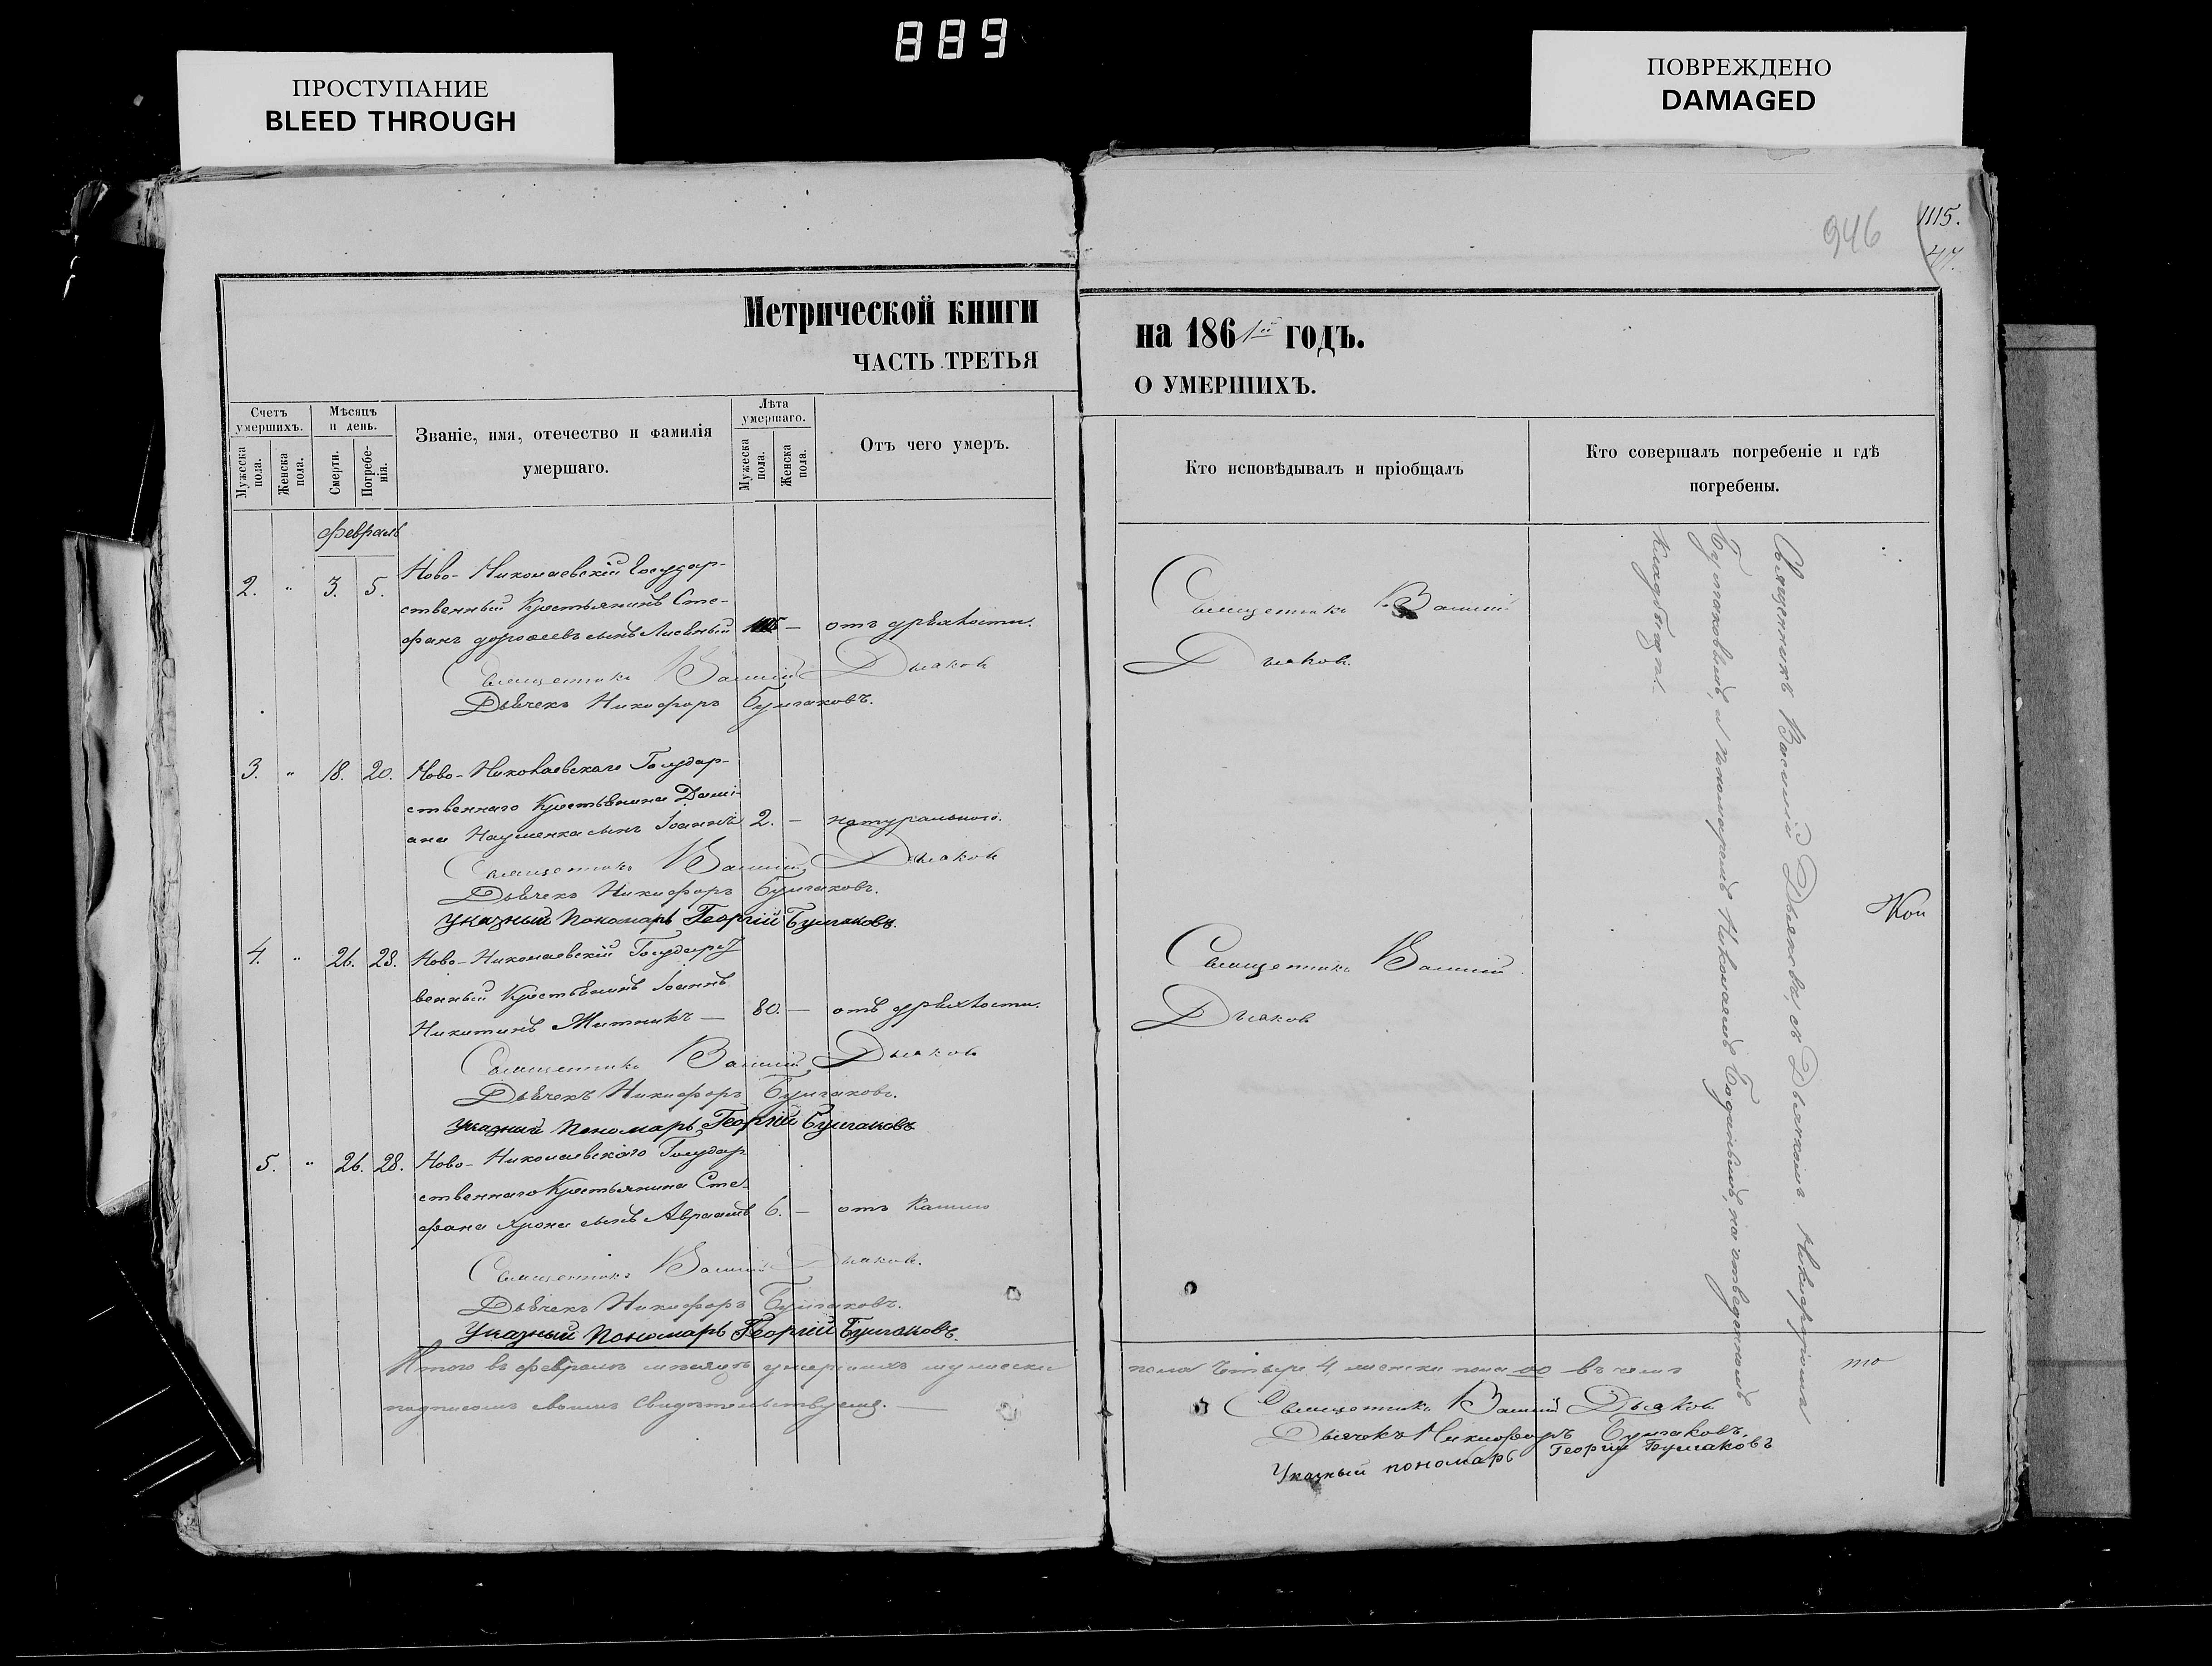 889
ПРОСТУПАНИЕ
BLEED THROUGH
ПОВРЕЖДЕНО
DAMAGED
946
1115.
47.
Метрической книги
ЧАСТЬ ТРЕТЬЯ
Счетъ умершихъ.
Мужеска пола.
Женска пола.
Мѣсяцъ и день.
Смерти.
Погребенія.
Званіе, имя, отечество и фамилія
умершаго.
Лѣта умершаго.
Мужеска пола.
Женска пола.
Отъ чего умеръ.
Февраль
2. " 3. 5. Ново-Николаевскій Государ-
ственный Крестьянинъ Сте-
фанъ дорофеевъ сынъ — отъ дряхлости.
Священникъ Василій Дьяковъ
Дьячекъ Никифоръ Булгаковъ.
3. " 18. 20. Ново-Николаевскаго Государ-
ственнаго Крестьянина Дамі-
ана Науменка сынъ Іоаннъ 2. — натурального.
Священникъ Василій Дьяковъ
Дьячекъ Никифоръ Булгаковъ.
Указный Пономарь Георгій Булгаковъ.
4. " 26. 28. Ново-Николаевскій Государст
венный Крестьянинъ Іоаннъ
Никитинъ Митникъ — 80. — отъ дряхлости.
Священникъ Василій Дьяковъ
Дьячекъ Никифоръ Булгаковъ.
Указный Пономарь Георгій Булгаковъ
5. " 26. 28. Ново-Николаевскаго Государ
ственнаго Крестьянина Сте-
фана сынъ Авраамъ 6. — отъ Кашлю
Священникъ Василій Дьяковъ.
Дьячекъ Никифоръ Булгаковъ.
Указный Пономарь Георгій Булгаковъ.
Итого въ февралѣ мѣсяцѣ умершихъ мужеска
подписомъ своимъ Свидѣтельствуемъ. —
на 1861й годъ.
О УМЕРШИХЪ.
Кто исповѣдывалъ и пріобщалъ
Кто совершалъ погребеніе и гдѣ
погребены.
Священникъ Василій
Дьяковъ.
Священникъ Василій
Дьяковъ
Священникъ Василій Дьяковъ, съ Дьячкомъ Никифоромъ
Булгаковымъ, и пономаремъ Николаемъ на отведенномъ
кладбищѣ.
Кои
пола четыре 4, женска пола 00 въ чемъ то
Священникъ Василій Дьяковъ
Дьячекъ Никифоръ Булгаковъ.
Указный пономарь Георгій Булгаковъ